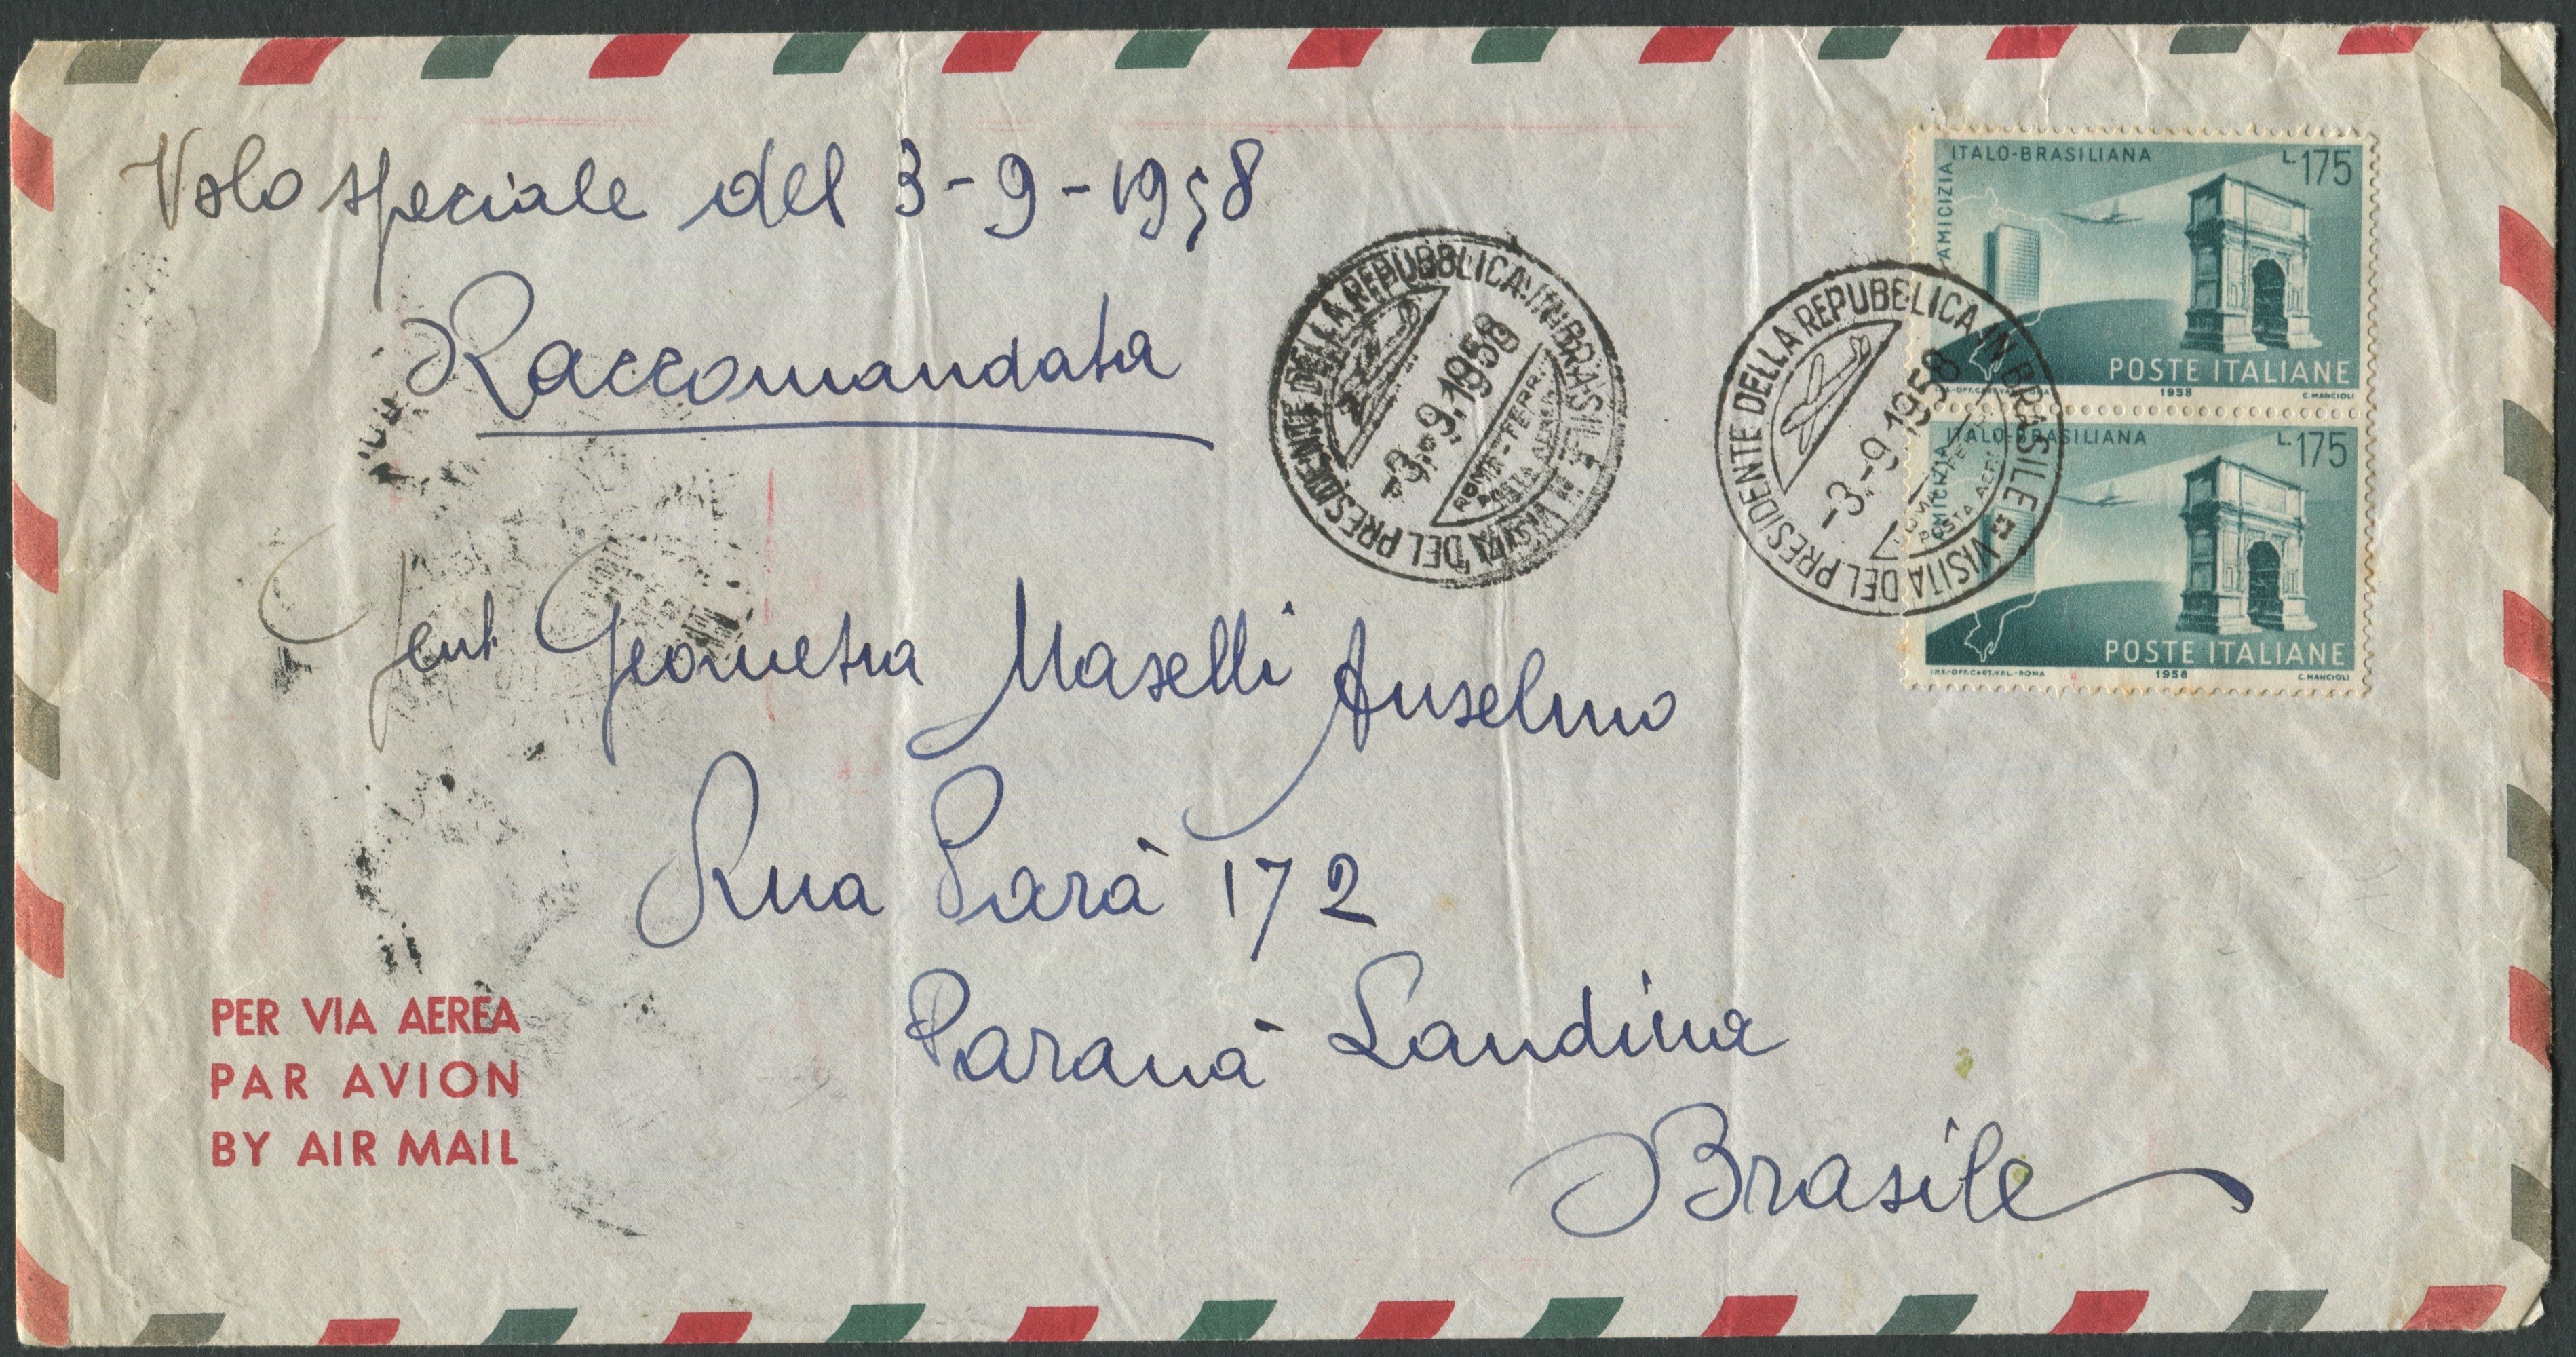 Volo speciale del 3-9-1958
Raccomandata
AMICIZIA
ITALO-BRASILIANA
L.175
POSTE ITALIANE
1958
C. MANCIOLI
VISITA DEL PRESIDENTE DELLA REPUBBLICA IN BRASILE
-3.-9.1958
ROMA-FERR.
POSTA AEREA
VISITA DEL PRESIDENTE DELLA REPUBBLICA IN BRASILE
-3.-9.1958
AMICIZIA
ITALO-BRASILIANA
L.175
POSTE ITALIANE
I.P.S.-OFF.CART.VAL.-ROMA
1958
C. MANCIOLI
Gent Geometra Maselli Anselmo
Rua Parà 172
Paranà Londina
Brasile
PER VIA AEREA
PAR AVION
BY AIR MAIL